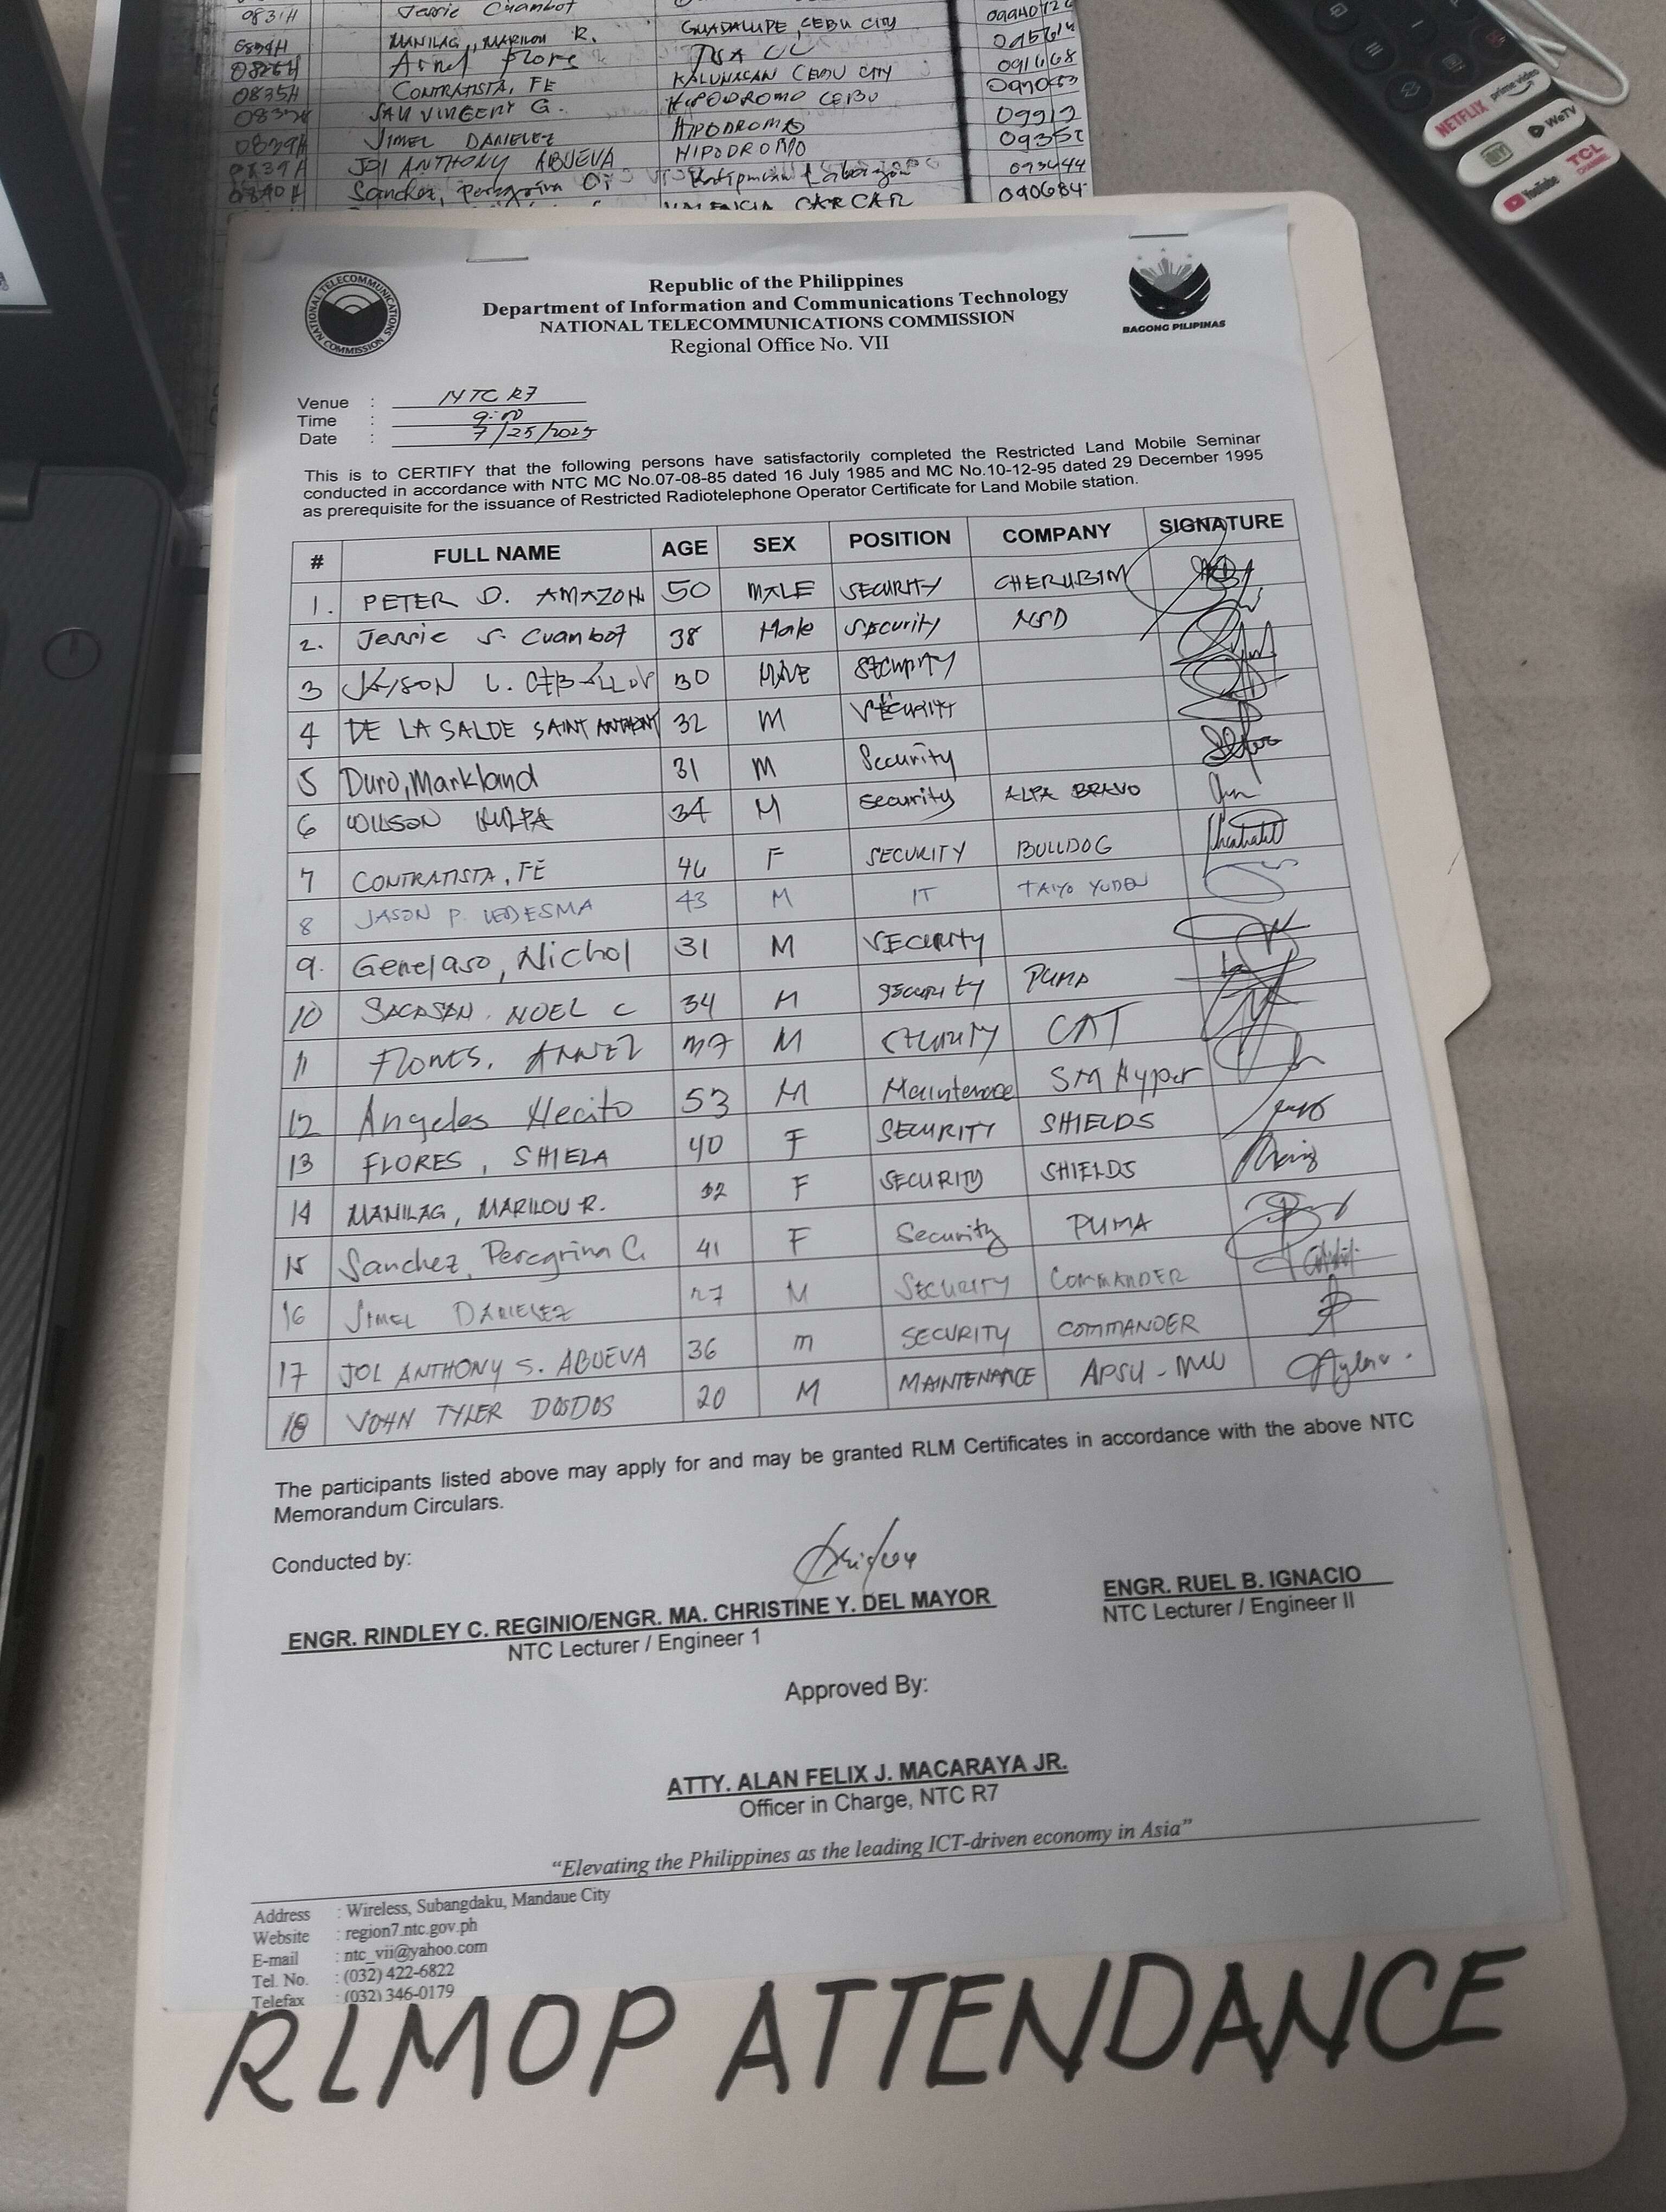 0831H Jessie Cuambot
0834H MANILAG, MARILOU R. GUADALUPE, CEBU CITY
Arnel Flores
0835H CONTRATISTA, FE KALUNASAN CEBU CITY
VINCENT G. HIPODROMO CEBU
JIMEL DANIELEZ HIPODROMO
0839H JOL ANTHONY ABUEVA HIPODROMO 093444
Sanchez, Peregrina 090684
VALENCIA CARCAR
NETFLIX prime video
WeTV
YouTube TCL CHANNEL
NATIONAL TELECOMMUNICATIONS COMMISSION
BAGONG PILIPINAS
Republic of the Philippines
Department of Information and Communications Technology
NATIONAL TELECOMMUNICATIONS COMMISSION
Regional Office No. VII
Venue : NTC R7
Time : 9:00
Date : 7/25/2025
This is to CERTIFY that the following persons have satisfactorily completed the Restricted Land Mobile Seminar
conducted in accordance with NTC MC No.07-08-85 dated 16 July 1985 and MC No.10-12-95 dated 29 December 1995
as prerequisite for the issuance of Restricted Radiotelephone Operator Certificate for Land Mobile station.
# FULL NAME AGE SEX POSITION COMPANY SIGNATURE
1. PETER D. AMAZON 50 MALE SECURITY CHERUBIM
2. Jessie S. Cuambot 38 Male Security NSD
3 JAYSON L. 30 MALE SECURITY
4 DE LA SALDE SAINT ANTHONY 32 M SECURITY
5 Duro, Markland 31 M Security
6 WILSON 34 M Security ALPA BRAVO
7 CONTRATISTA, FE 46 F SECURITY BULLDOG
8 JASON P. LEDESMA 43 M IT TAIYO YUDEN
9. Genelaso, Nichol 31 M SECURITY
10 SACASAN. NOEL C 34 M SECURITY PUMA
11 FLORES, 37 M SECURITY CAT
12 Angeles Hecito 53 M Maintenace SM Hyper
13 FLORES, SHIELA 40 F SECURITY SHIELDS
14 MANILAG, MARILOU R. 32 F SECURITY SHIELDS
15 Sanchez, Peregrina C. 41 F Security PUMA
16 JIMEL DANIELEZ 27 M SECURITY COMMANDER
17 JOL ANTHONY S. ABUEVA 36 m SECURITY COMMANDER
18 JOHN TYLER DOSDOS 20 M MAINTENANCE APSU - MW
The participants listed above may apply for and may be granted RLM Certificates in accordance with the above NTC
Memorandum Circulars.
Conducted by:
ENGR. RINDLEY C. REGINIO/ENGR. MA. CHRISTINE Y. DEL MAYOR ENGR. RUEL B. IGNACIO
NTC Lecturer / Engineer 1 NTC Lecturer / Engineer II
Approved By:
ATTY. ALAN FELIX J. MACARAYA JR.
Officer in Charge, NTC R7
“Elevating the Philippines as the leading ICT-driven economy in Asia”
Address : Wireless, Subangdaku, Mandaue City
Website : region7.ntc.gov.ph
E-mail : ntc_vii@yahoo.com
Tel. No. : (032) 422-6822
Telefax : (032) 346-0179
RLMOP ATTENDANCE